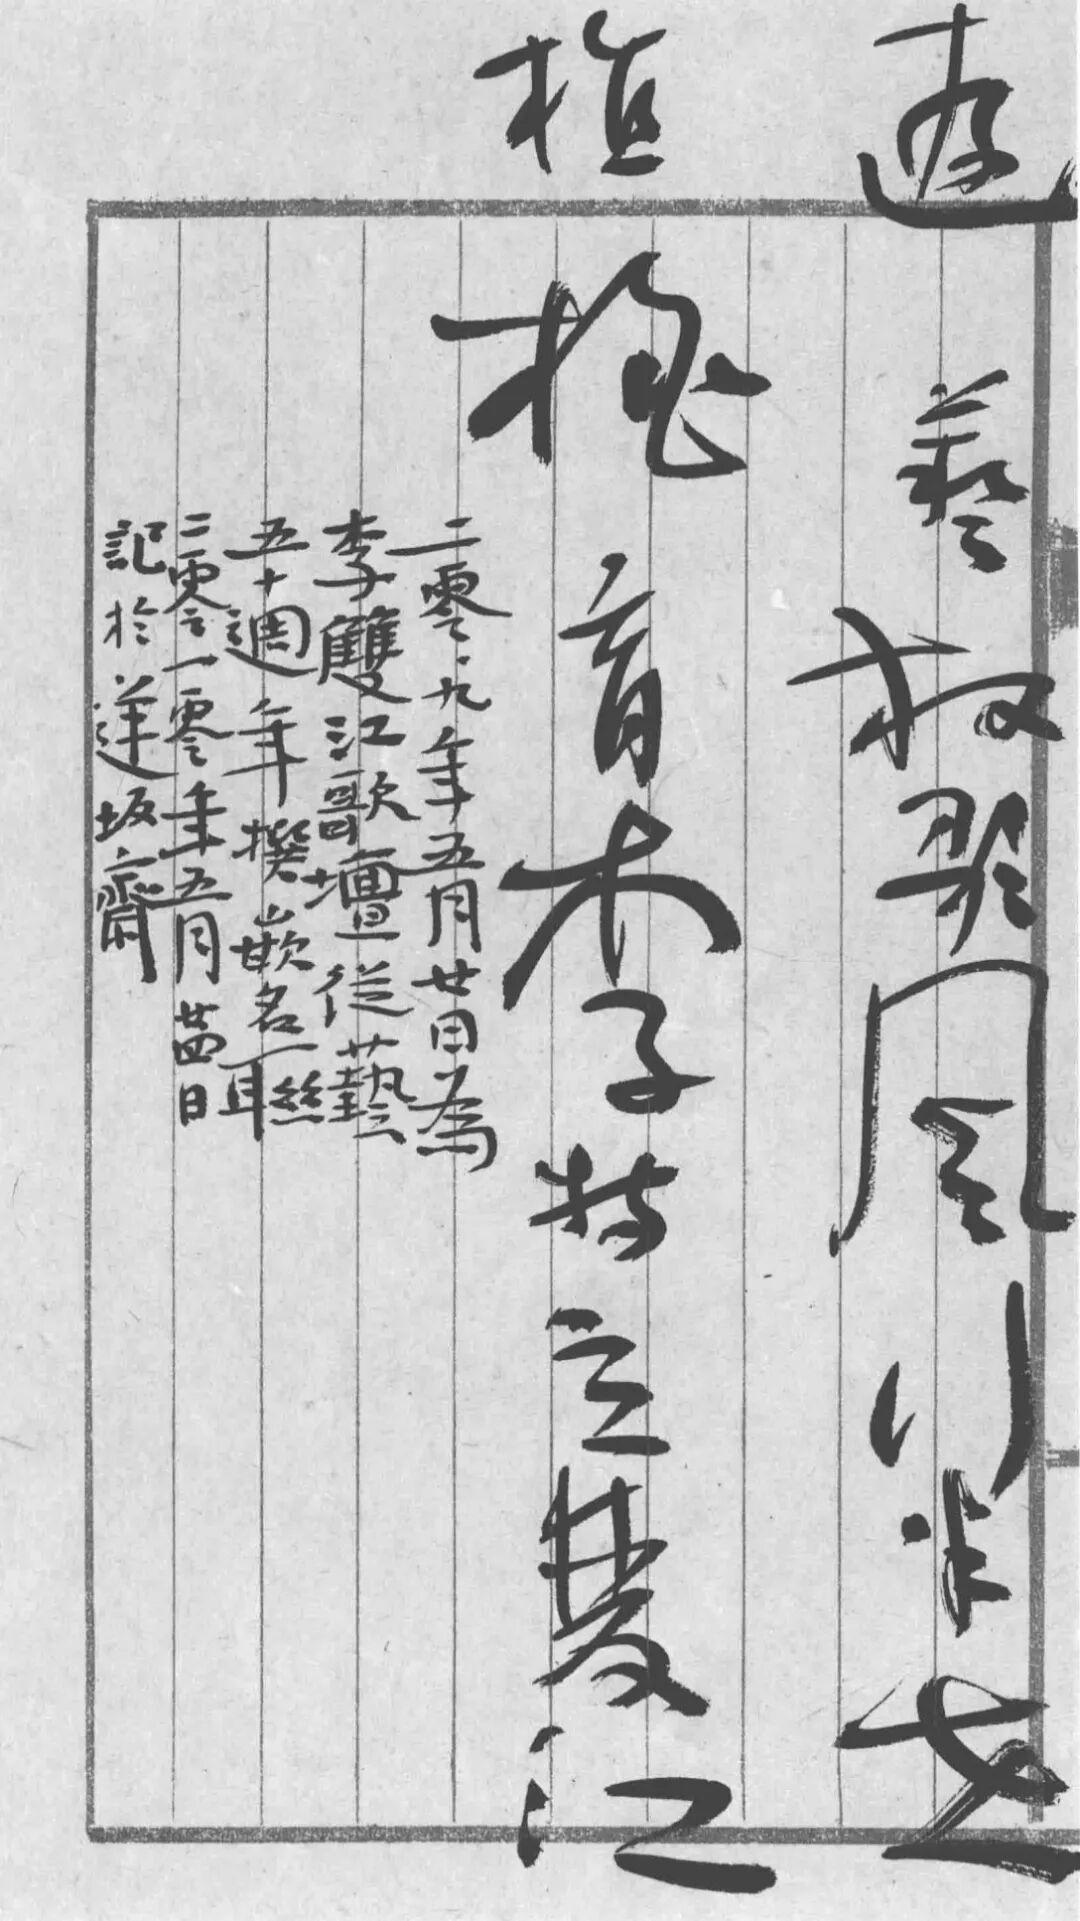 遊藝放歌風行半世
植根育木子特立雙江
二零零九年五月廿日為
李雙江歌壇從藝
五十週年撰嵌名聯
二零一零年五月廿四日
記於蓮坂齋